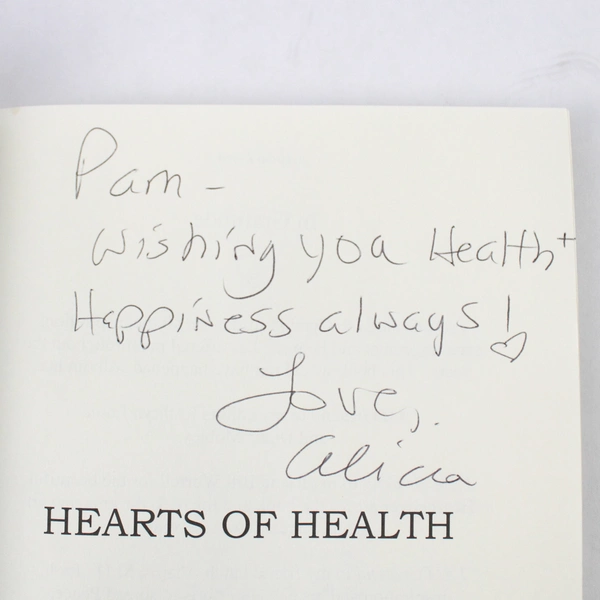 Pam -
Wishing you Health +
Happiness always!
Love,
Alicia
HEARTS OF HEALTH